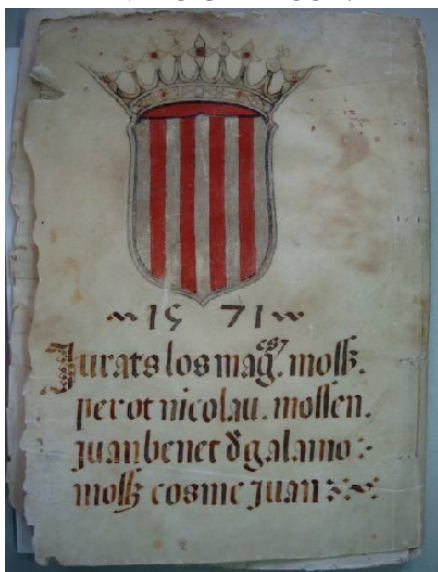 1571
Jurats los mag.cs moss.
perot nicolau. mossen.
juan benet d galamo
moss cosme juan